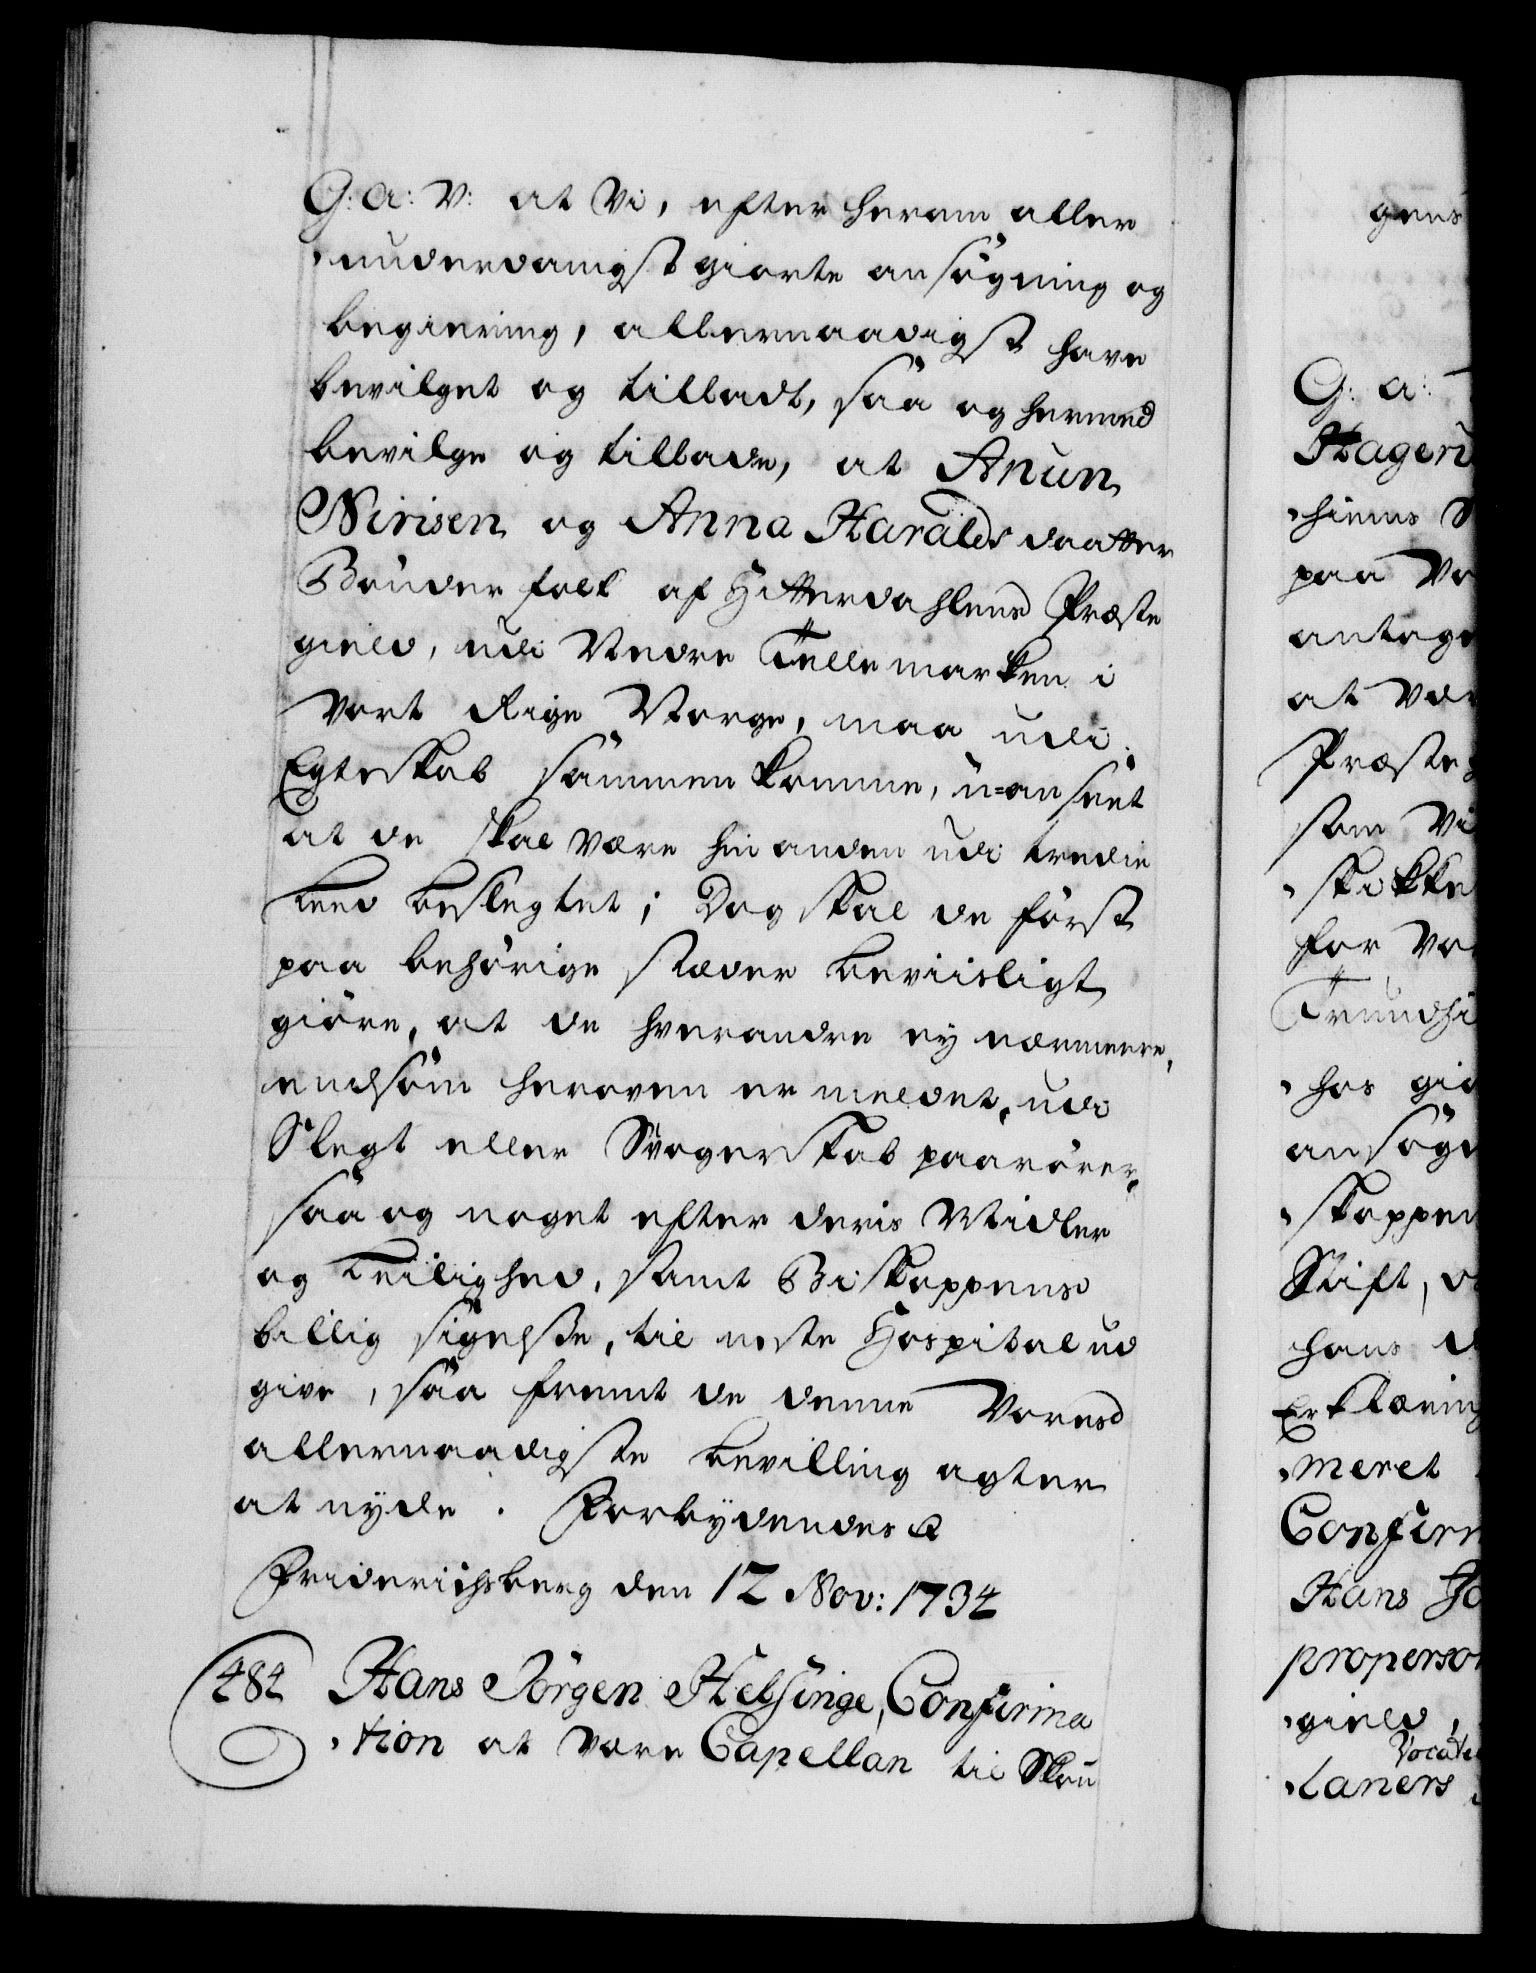 G: a: V: at Vi, efter herom aller
underdanigst giorte ansøgning og
begiering, allernaadigst have
bevilget og tilladt, saa og hermed
bevilge og tillade, at Anun
Nirisen og Anna Haraldsdaatter
Bønder folk af Hitterdahlens Præste
gield, udi Nedre Tellemarken i
Vort Rige Norge, maa udi
Egteskab sammen komme, u=anseet
at de skal være hin anden udi tredie
Leed beslegtet; Dog skal de først
paa behørige stæder beviisligt
giøre, at de hverandre ej nærmere,
end som heroven er meldet, udi
Slegt eller Svogerskab paarører,
saa og noget efter deris Midler
og Leilighed, samt Biskoppens
billig sigelse, til neste Hospital ud
give, saa fremt de denne Vores
allernaadigste bevilling agter
at nyde. Forbydendes &
Friderichsberg den 12 Nov: 1734
484 Hans Jörgen Helsinge, Confirma
tion at være Capellan til Skou
gens
G: a:
Hageru
hiems S
paa Vo
antage
at vær
Præste g
som Vi
skikke
for Vo
Trundhi
hos gio
ansøge
skoppen
Stift, o
hans d
Erklæring
meret
Confirm
Hans Jö
properso
gield,
Vocatio
Laners